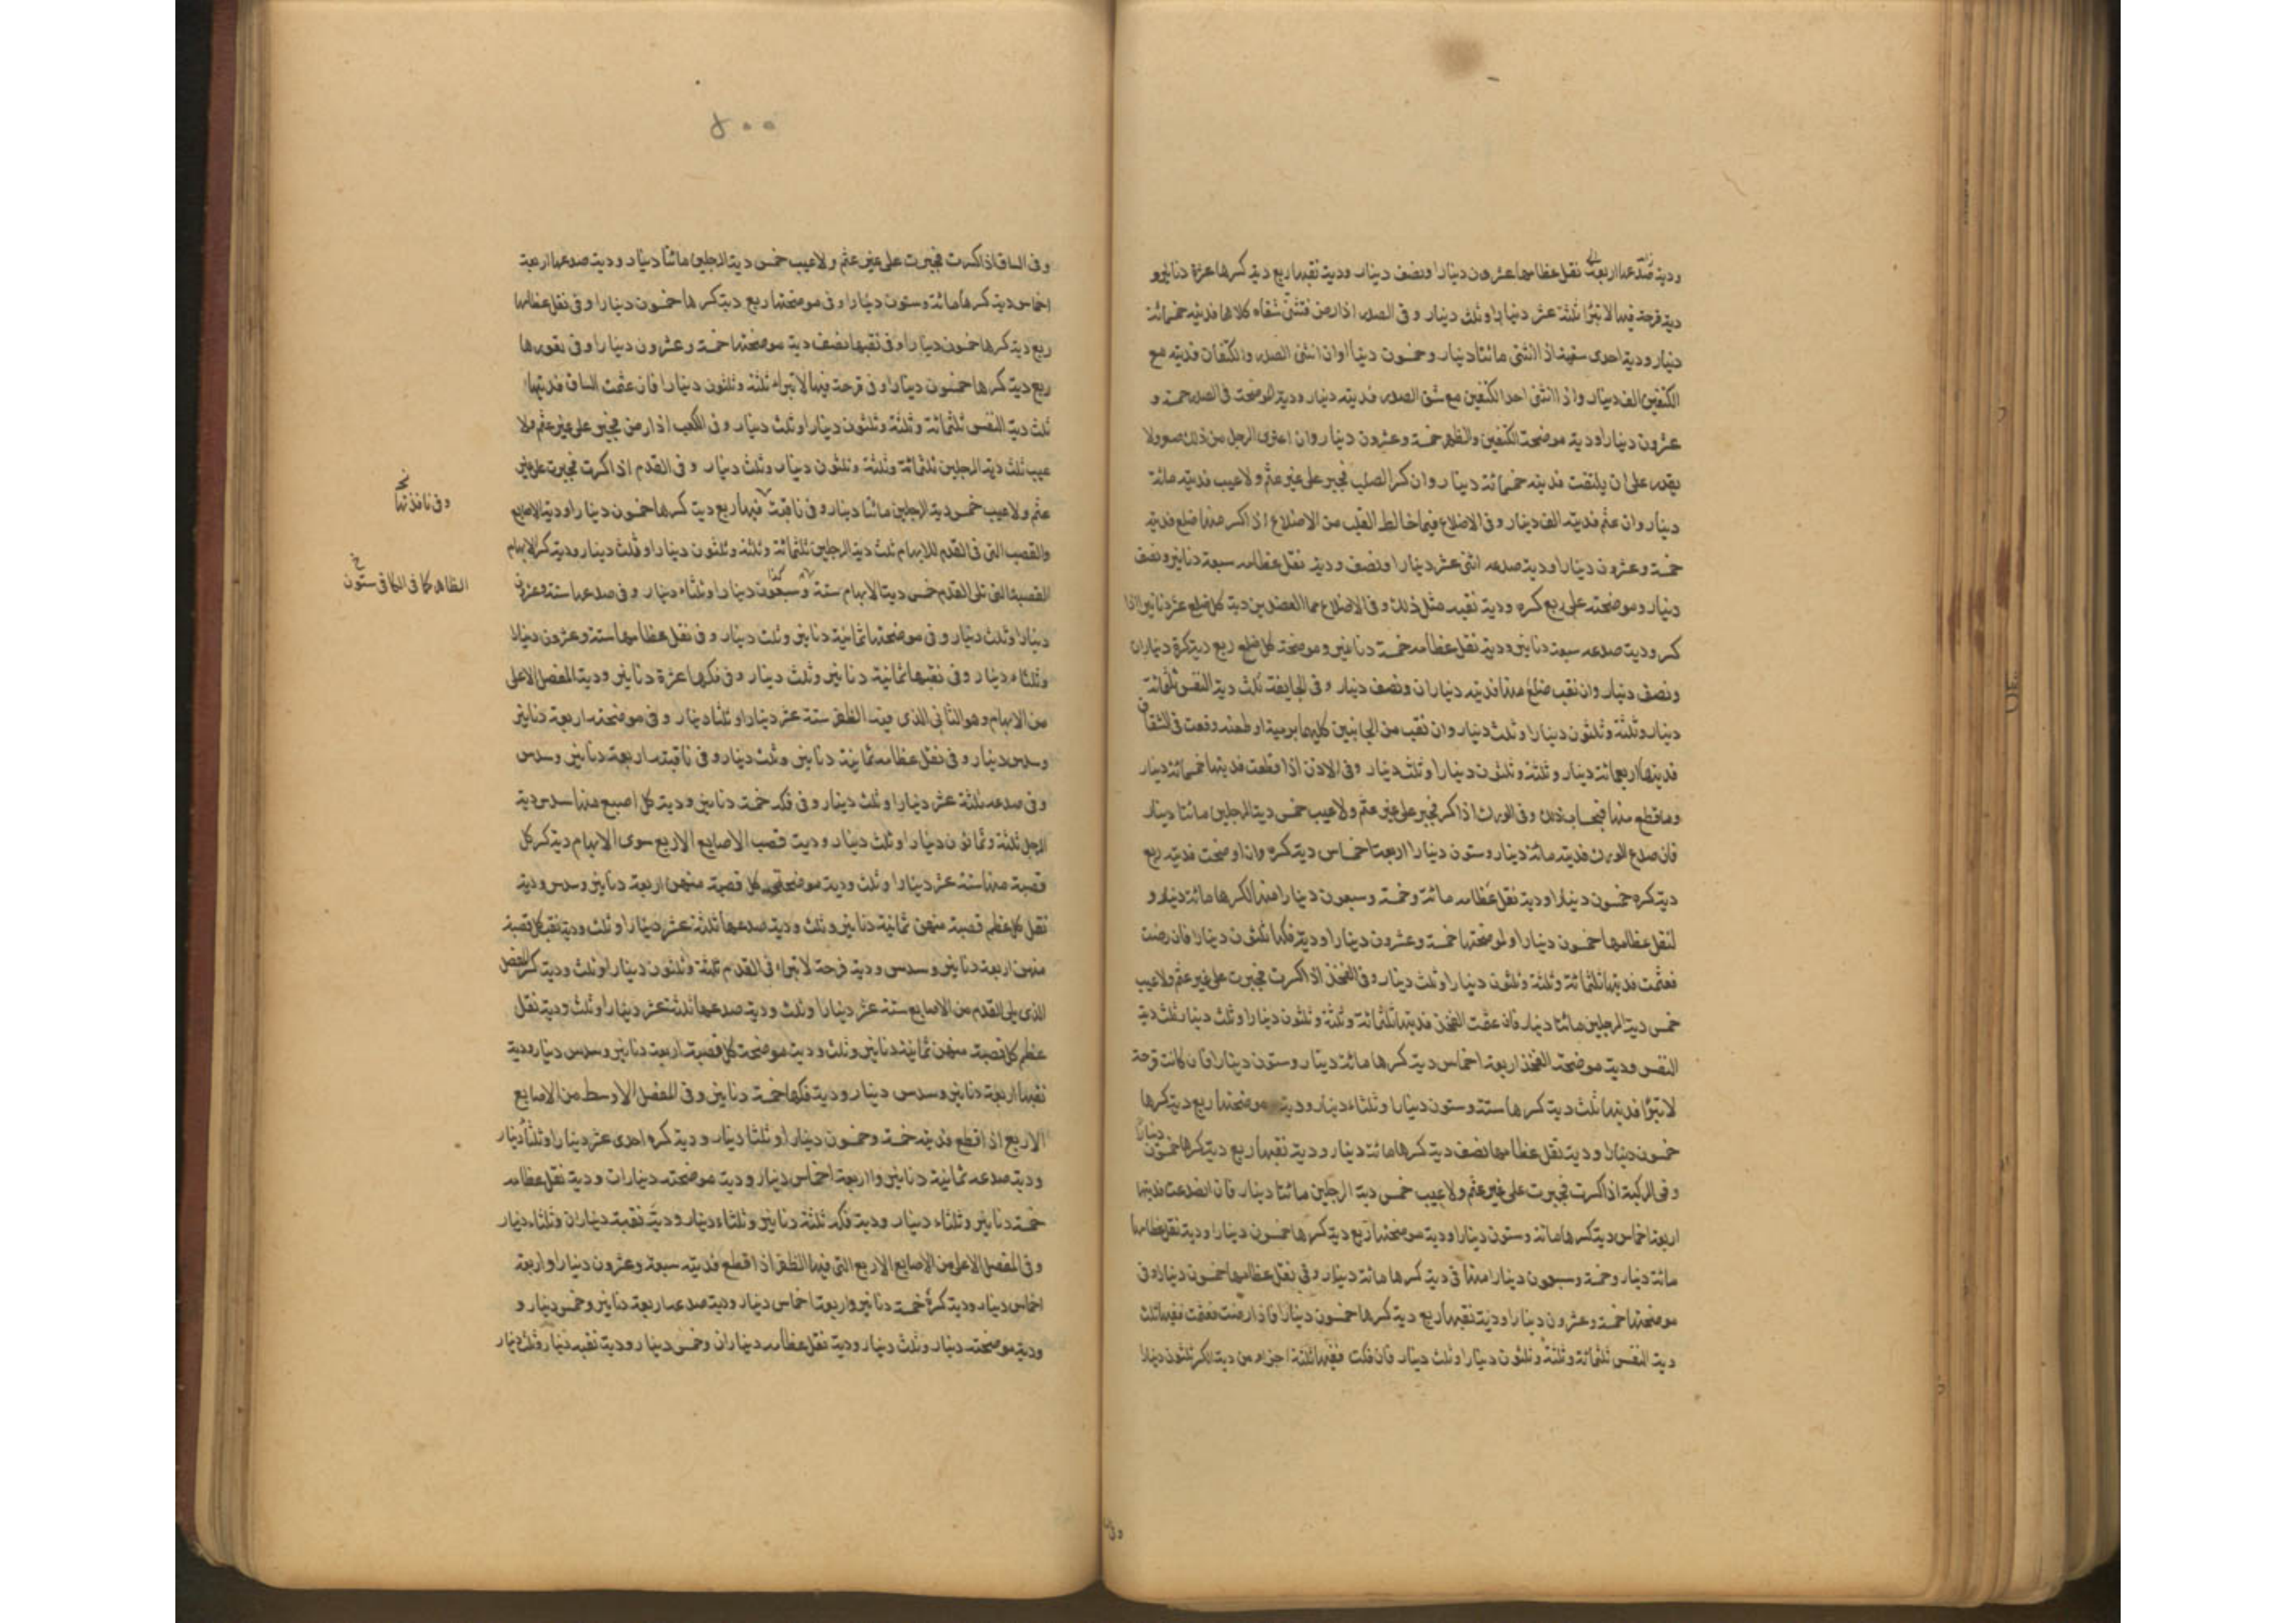 ودية صدعها اربعة نقل عظامها عشرون دينارا ونصف دينار ودية نقبها ربع دية كسرها عشرة دنانير و
دية قرحة فيها لا تبرا ثلثة عشر دينارا وثلث دينار وفي الصدر اذا رض فتثنى شقاه كلاهما فديته خمسمائة
دينار ودية احدى شقيه اذا انثنى مائتا دينار وخمسون دينارا وان انثنى الصدر والكتفان فديته مع
الكتفين الف دينار واذا انثنى احد الكتفين مع شق الصدر فديته دينار ودية الموضحة في الصدر خمسة و
عشرون دينارا ودية موضحة الكتفين والظهر خمسة وعشرون دينار وان اعترى الرجل من ذلك صعر ولا
يقدر على ان يلتفت فديته خمسمائة دينار وان كسر الصلب فجبر على غير عثم ولا عيب فديته مائة
دينار وان عثم فديته الف دينار وفي الاضلاع فيما خالط القلب من الاضلاع اذا كسر منها ضلع فديته
خمسة وعشرون دينارا ودية صدعه اثنى عشر دينارا ونصف ودية نقل عظامه سبعة دنانير ونصف
دينار وموضحته على ربع كسره ودية نقبه مثل ذلك وفي الاضلاع مما العضدين دية كل ضلع عشر دنانير اذا
كسر ودية صدعه سبعة دنانير ودية نقل عظامه خمسة دنانير وموضحة كل ضلع ربع دية كسرة ديناران
ونصف دينار وان نقب ضلع منها فديته ديناران ونصف دينار وفي الجايفة ثلث دية النفس ثلثمائة
دينار وثلثة وثلثون دينارا وثلث دينار وان نقب من الجانبين كليهما برمية او طعنه وقعت في الشقاق
فديتها اربعمائة دينار وثلثة وثلثون دينارا وثلث دينار وفي الاذن اذا قطعت فديتها خمسمائة دينار
وما قطع منها فبحساب ذلك وفي الورك اذا كسر فجبر على غير عثم ولا عيب خمس دية الرجلين مائتا دينار
فان صدع الورك فديته مائة دينار وستون دينارا اربعة اخماس دية كسره وان اوضحت فديته ربع
دية كسره خمسون دينارا ودية نقل عظامه مائة وخمسة وسبعون دينارا منها لكسرها مائة دينار و
لنقل عظامها خمسون دينارا ولموضحتها خمسة وعشرون دينارا ودية فكها ثلثون دينارا فان رضت
فعثمت فديتها ثلثمائة وثلثة وثلثون دينارا وثلث دينار وفي الفخذ اذا كسرت فجبرت على غير عثم ولا عيب
خمس دية الرجلين مائتا دينار وان عثمت الفخذ فديتها ثلثمائة وثلثة وثلثون دينارا وثلث دينار ثلث دية
النفس ودية موضحة الفخذ اربعة اخماس دية كسرها مائة دينار وستون دينارا فان كانت قرحة
لا تبرا فديتها ثلث دية كسرها ستة وستون دينارا وثلثاء دينار ودية موضحتها ربع دية كسرها
خمسون دينارا ودية نقل عظامها نصف دية كسرها مائة دينار ودية نقبها ربع دية كسرها خمسون دينارا
وفي الركبة اذا كسرت فجبرت على غير عثم ولا عيب خمس دية الرجلين مائتا دينار فان انصدعت فديتها
اربعة اخماس دية كسرها مائة وستون دينارا ودية موضحتها ربع دية كسرها خمسون دينارا ودية نقل عظامها
مائة دينار وخمسة وسبعون دينارا منها في دية كسرها مائة دينار وفي نقل عظامها خمسون دينارا وفي
موضحتها خمسة وعشرون دينارا ودية نقبها ربع دية كسرها خمسون دينارا فاذا رضت فعثمت ففيها ثلث
دية النفس ثلثمائة وثلثة وثلثون دينارا وثلث دينار فان فكت ففيها ثلثة اجزاء من دية الكسر ثلثون دينارا
٤٠٠
وفي الساق اذا كسرت فجبرت على غير عثم ولا عيب خمس دية الرجلين مائتا دينار ودية صدعها اربعة
اخماس دية كسرها مائة وستون دينارا وفي موضحتها ربع دية كسرها خمسون دينارا وفي نقل عظامها
ربع دية كسرها خمسون دينارا وفي نقبها نصف دية موضحتها خمسة وعشرون دينارا وفي نقورها
ربع دية كسرها خمسون دينارا وفي قرحة فيها لا تبراء ثلثة وثلثون دينارا فان عثمت الساق فديتها
ثلث دية النفس ثلثمائة وثلثة وثلثون دينارا وثلث دينار وفي الكعب اذا رض فجبر على غير عثم ولا
عيب ثلث دية الرجلين ثلثمائة وثلثة وثلثون دينار وثلث دينار وفي القدم اذا كسرت فجبرت على غير
عثم ولا عيب خمس دية الرجلين مائتا دينار وفي ناقبة فيها ربع دية كسرها خمسون دينارا ودية الاصابع
وفي نافذتها
والقصب التي في القدم للابهام ثلث دية الرجلين ثلثمائة وثلثة وثلثون دينارا وثلث دينار ودية كسر الابهام
القصبة التي تلى القدم خمس دية الابهام ستة وسبعون دينارا وثلثاء دينار وفي صدعها ستة وعشرون
الظاهر كما في الكافي ستون
دينارا وثلث دينار وفي موضحتها ثمانية دنانير وثلث دينار وفي نقل عظامها ستة وعشرون دينارا
وثلثاء دينار وفي نقبها ثمانية دنانير وثلث دينار وفي فكها عشرة دنانير ودية المفصل الاعلى
من الابهام وهو الثاني الذي فيه الظفر ستة عشر دينارا وثلثا دينار وفي موضحته اربعة دنانير
وسدس دينار وفي نقل عظامه ثمانية دنانير وثلث دينار وفي ناقبته اربعة دنانير وسدس
وفي صدعه ثلثة عشر دينارا وثلث دينار وفي فكه خمسة دنانير ودية كل اصبع منها سدس دية
الرجل ثلثة وثمانون دينارا وثلث دينار ودية قصب الاصابع الاربع سوى الابهام دية كسر كل
قصبة منها ستة عشر دينارا وثلث ودية موضحة كل قصبة منهن اربعة دنانير وسدس ودية
نقل كل عظم قصبة منهن ثمانية دنانير وثلث ودية صدعها ثلثة عشر دينارا وثلث ودية نقب كل قصبة
منهن اربعة دنانير وسدس ودية قرحة لا تبراء في القدم ثلثة وثلثون دينارا وثلث ودية كسر المفصل
الذي يلى القدم من الاصابع ستة عشر دينارا وثلث ودية صدعها ثلثة عشر دينارا وثلث ودية نقل
عظم كل قصبة منهن ثمانية دنانير وثلث ودية موضحة كل قصبة اربعة دنانير وسدس دينار ودية
نقبها اربعة دنانير وسدس دينار ودية فكها خمسة دنانير وفي المفصل الاوسط من الاصابع
الاربع اذا قطع فديته خمسة وخمسون دينارا وثلثا دينار ودية كسره احدى عشر دينارا وثلثا دينار
ودية صدعه ثمانية دنانير واربعة اخماس دينار ودية موضحته ديناران ودية نقل عظامه
خمسة دنانير وثلثاء دينار ودية فكه ثلثة دنانير وثلثاء دينار ودية نقبه ديناران وثلثاء دينار
وفي المفصل الاعلى من الاصابع الاربع التي فيها الظفر اذا قطع فديته سبعة وعشرون دينارا واربعة
اخماس دينار ودية كسرة خمسة دنانير واربعة اخماس دينار ودية صدعه اربعة دنانير وخمس دينار و
ودية موضحته دينار وثلث دينار ودية نقل عظامه ديناران وخمس دينار ودية نقبه دينار وثلث دينار